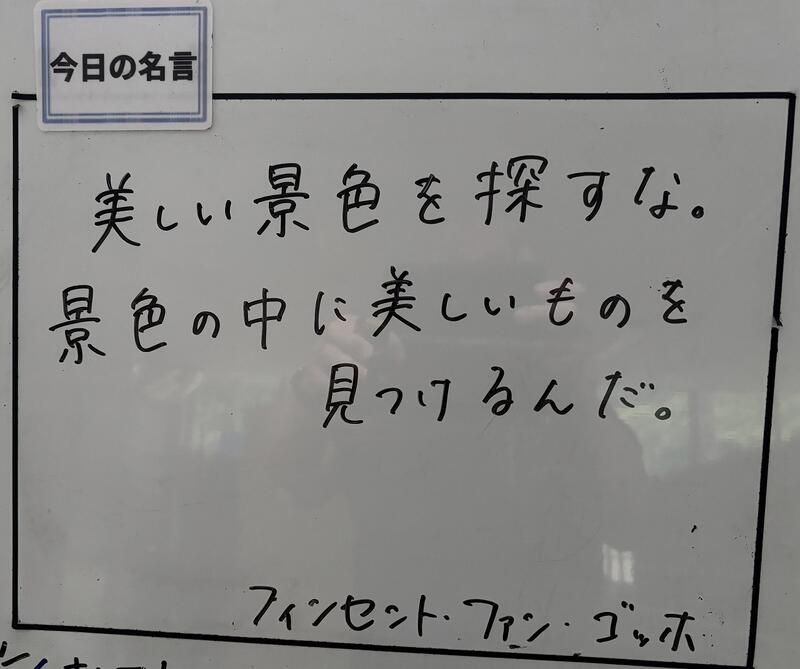 今日の名言
美しい景色を探すな。
景色の中に美しいものを
見つけるんだ。
フィンセント・ファン・ゴッホ